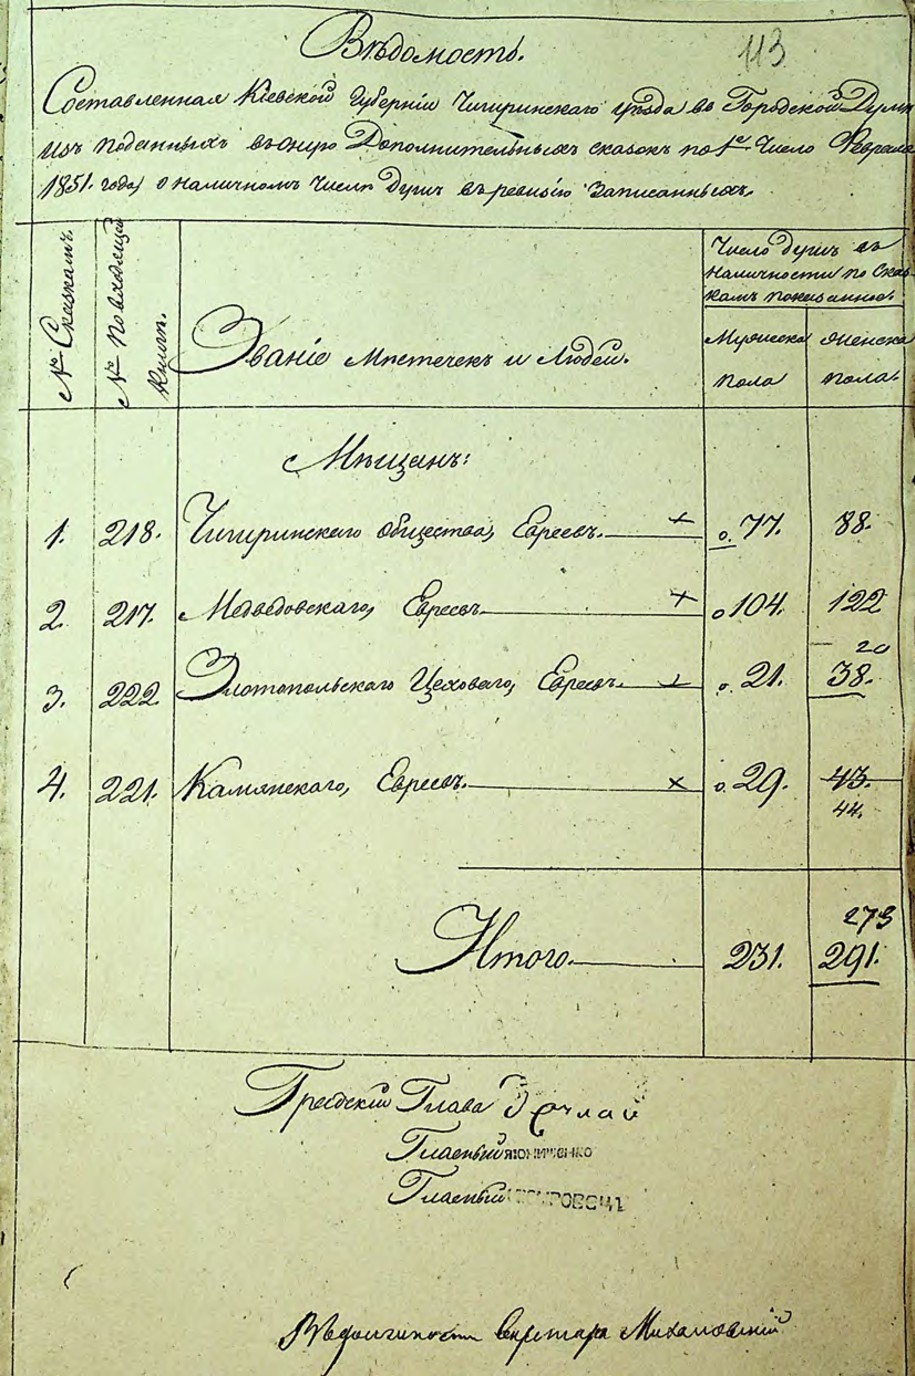 Вѣдомость.
113
Составленная Кіевской Губерніи Чигиринскаго уѣзда въ Городской Думѣ
изъ поданныхъ въ оную Дополнительныхъ сказокъ по 1е Число Февраля
1851. года, о наличномъ числѣ душъ въ ревизію записанныхъ.
№ Сказкамъ.
№ по входящей
книгѣ.
Званіе мѣстечекъ и людей.
Число душъ въ
наличности по сказ-
камъ показанное.
Мужеска
пола
женска
пола.
Мѣщанъ:
1. 218. Чигиринскаго общества, Евреевъ. + о. 77. 88.
2. 217. Медведовскаго, Евреевъ + о 104. 122
20
3. 222. Златопольскаго Цеховаго, Евреевъ. о. 21. 38.
4. 221. Камянскаго, Евреевъ. × о. 29. 43.
44.
273
Итого. 231. 291.
Градскій Глава
Гласный
Гласный
Въ должности Секретаря Михаловскій